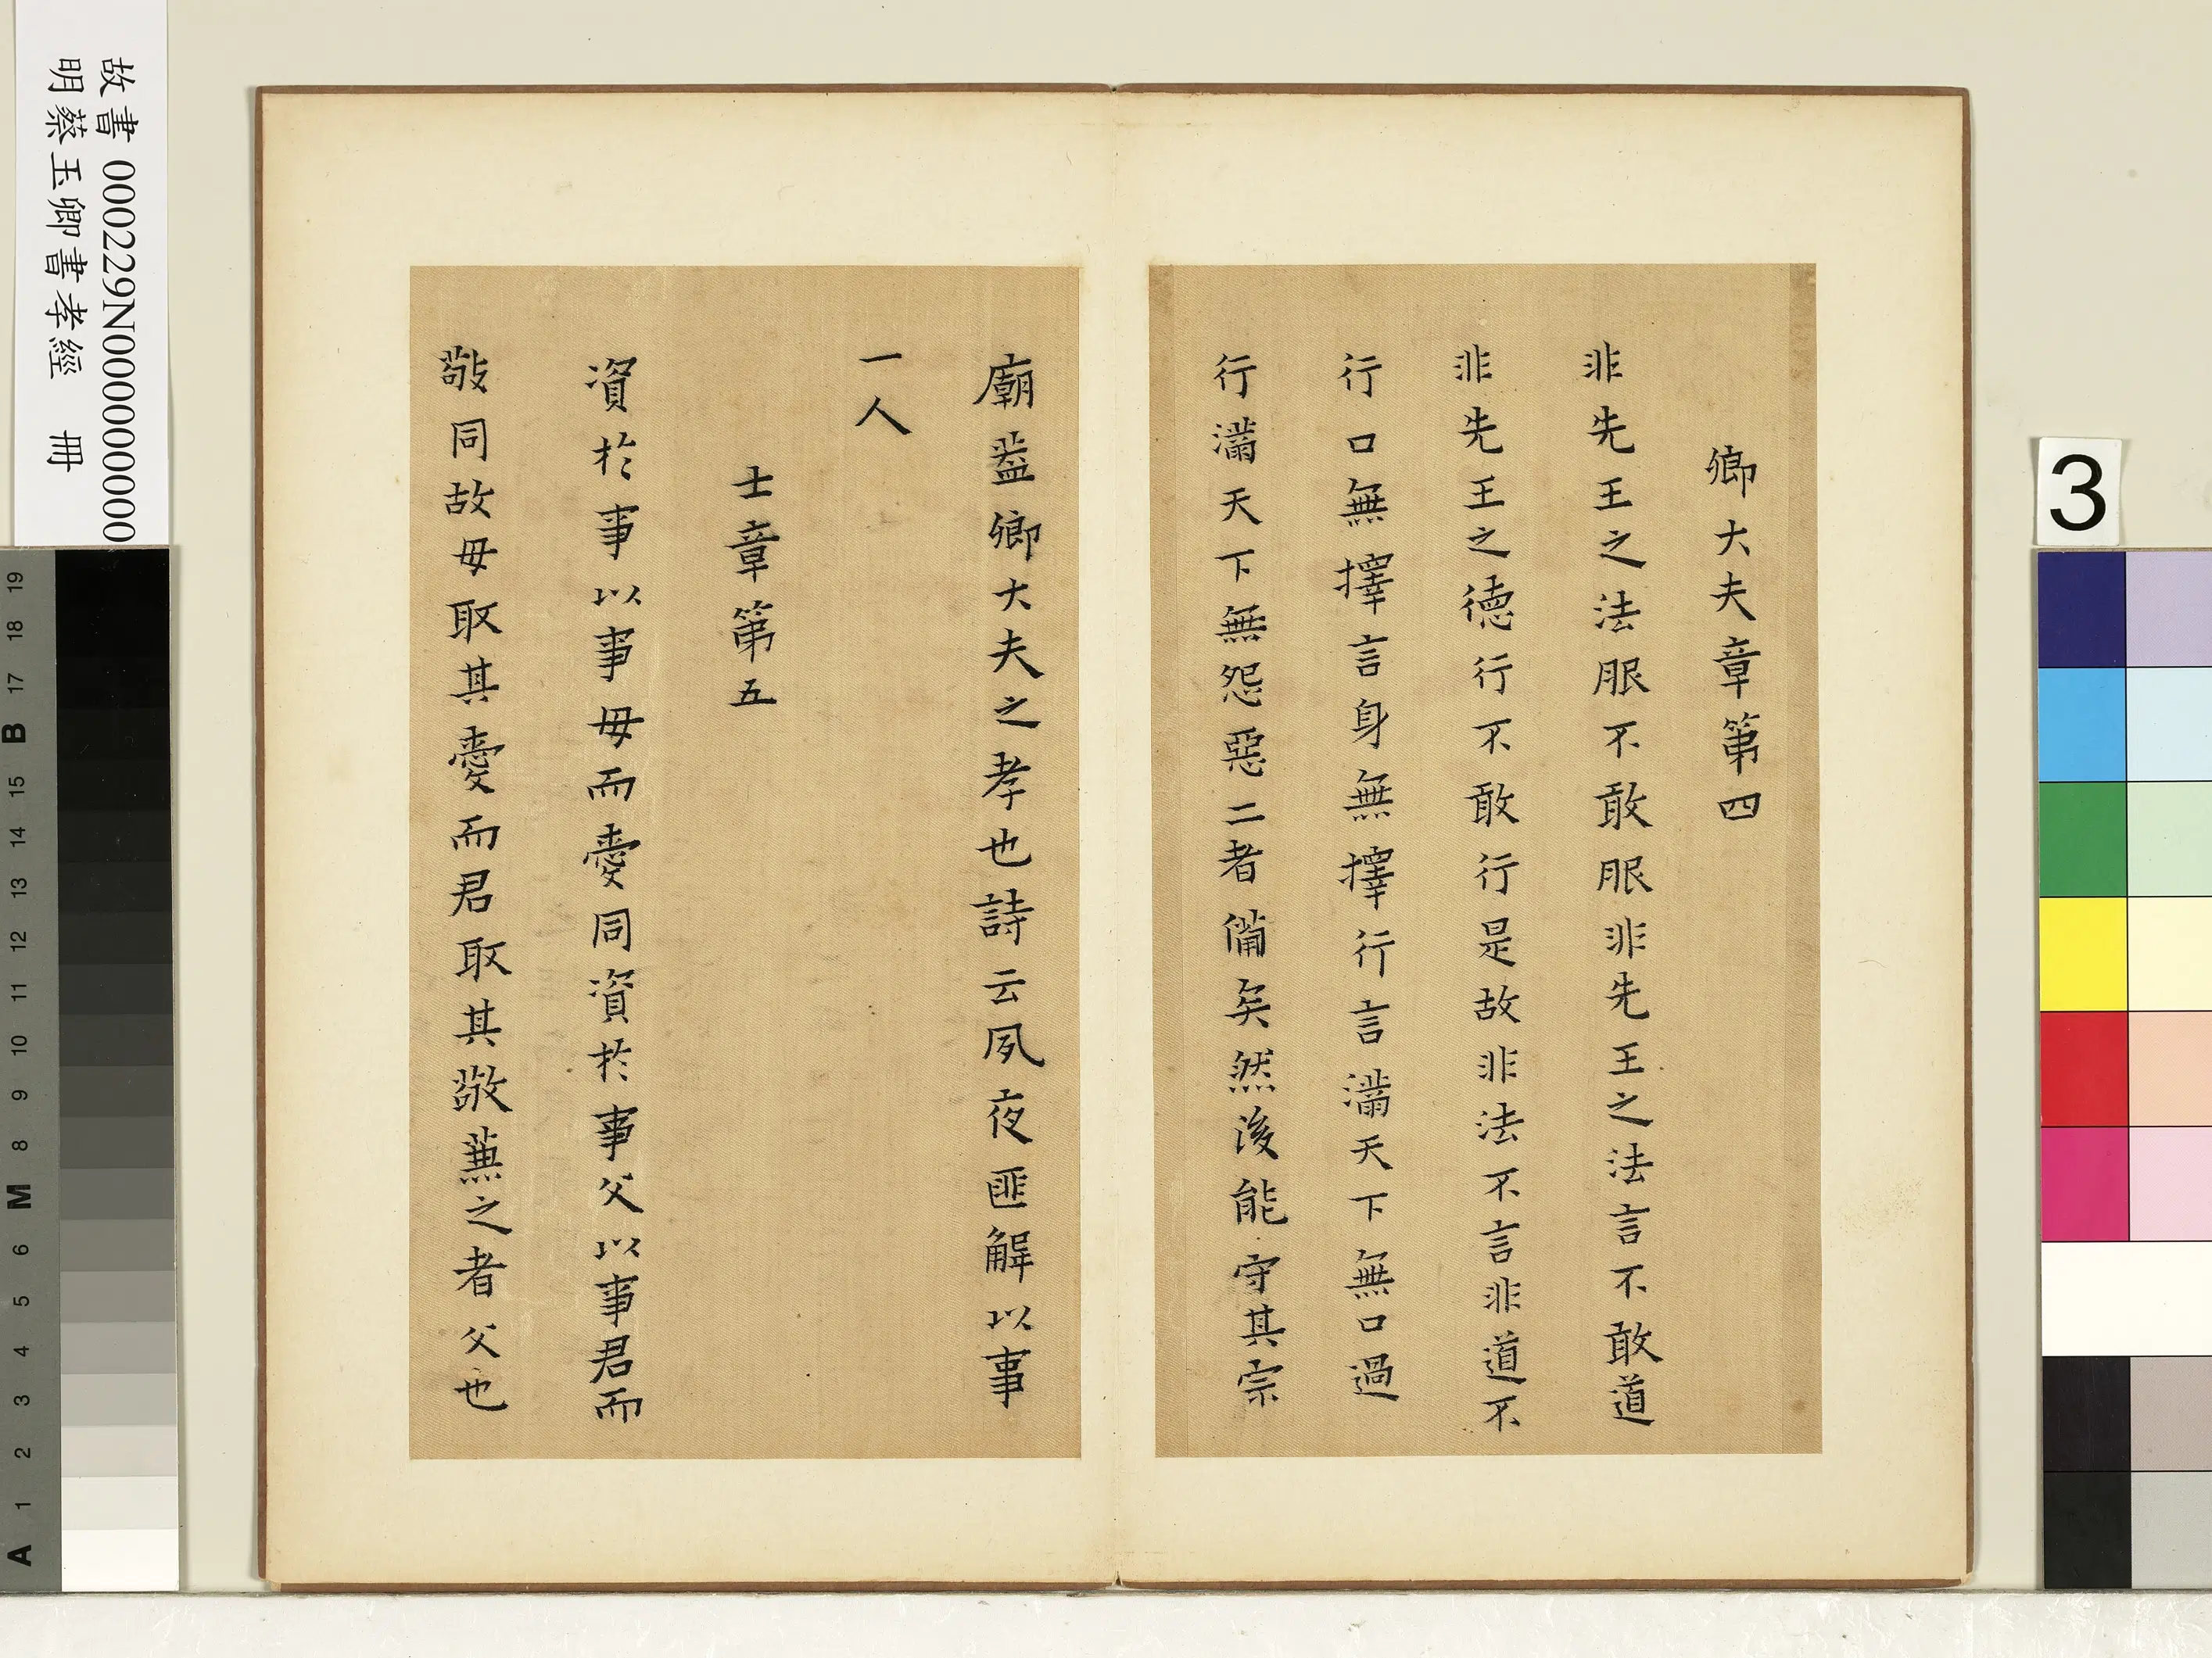 卿大夫章第四
非先王之法服不敢服非先王之法言不敢道
非先王之德行不敢行是故非法不言非道不
行口無擇言身無擇行言滿天下無口過
行滿天下無怨惡二者備矣然後能守其宗
廟葢卿大夫之孝也詩云夙夜匪解以事
一人
士章第五
資於事以事母而愛同資於事父以事君而
敬同故母取其愛而君取其敬兼之者父也
故書000229N000000000
明蔡玉卿書孝經 冊
3
A 1 2 3 4 5 6 M 8 9 10 11 12 13 14 15 B 17 18 19